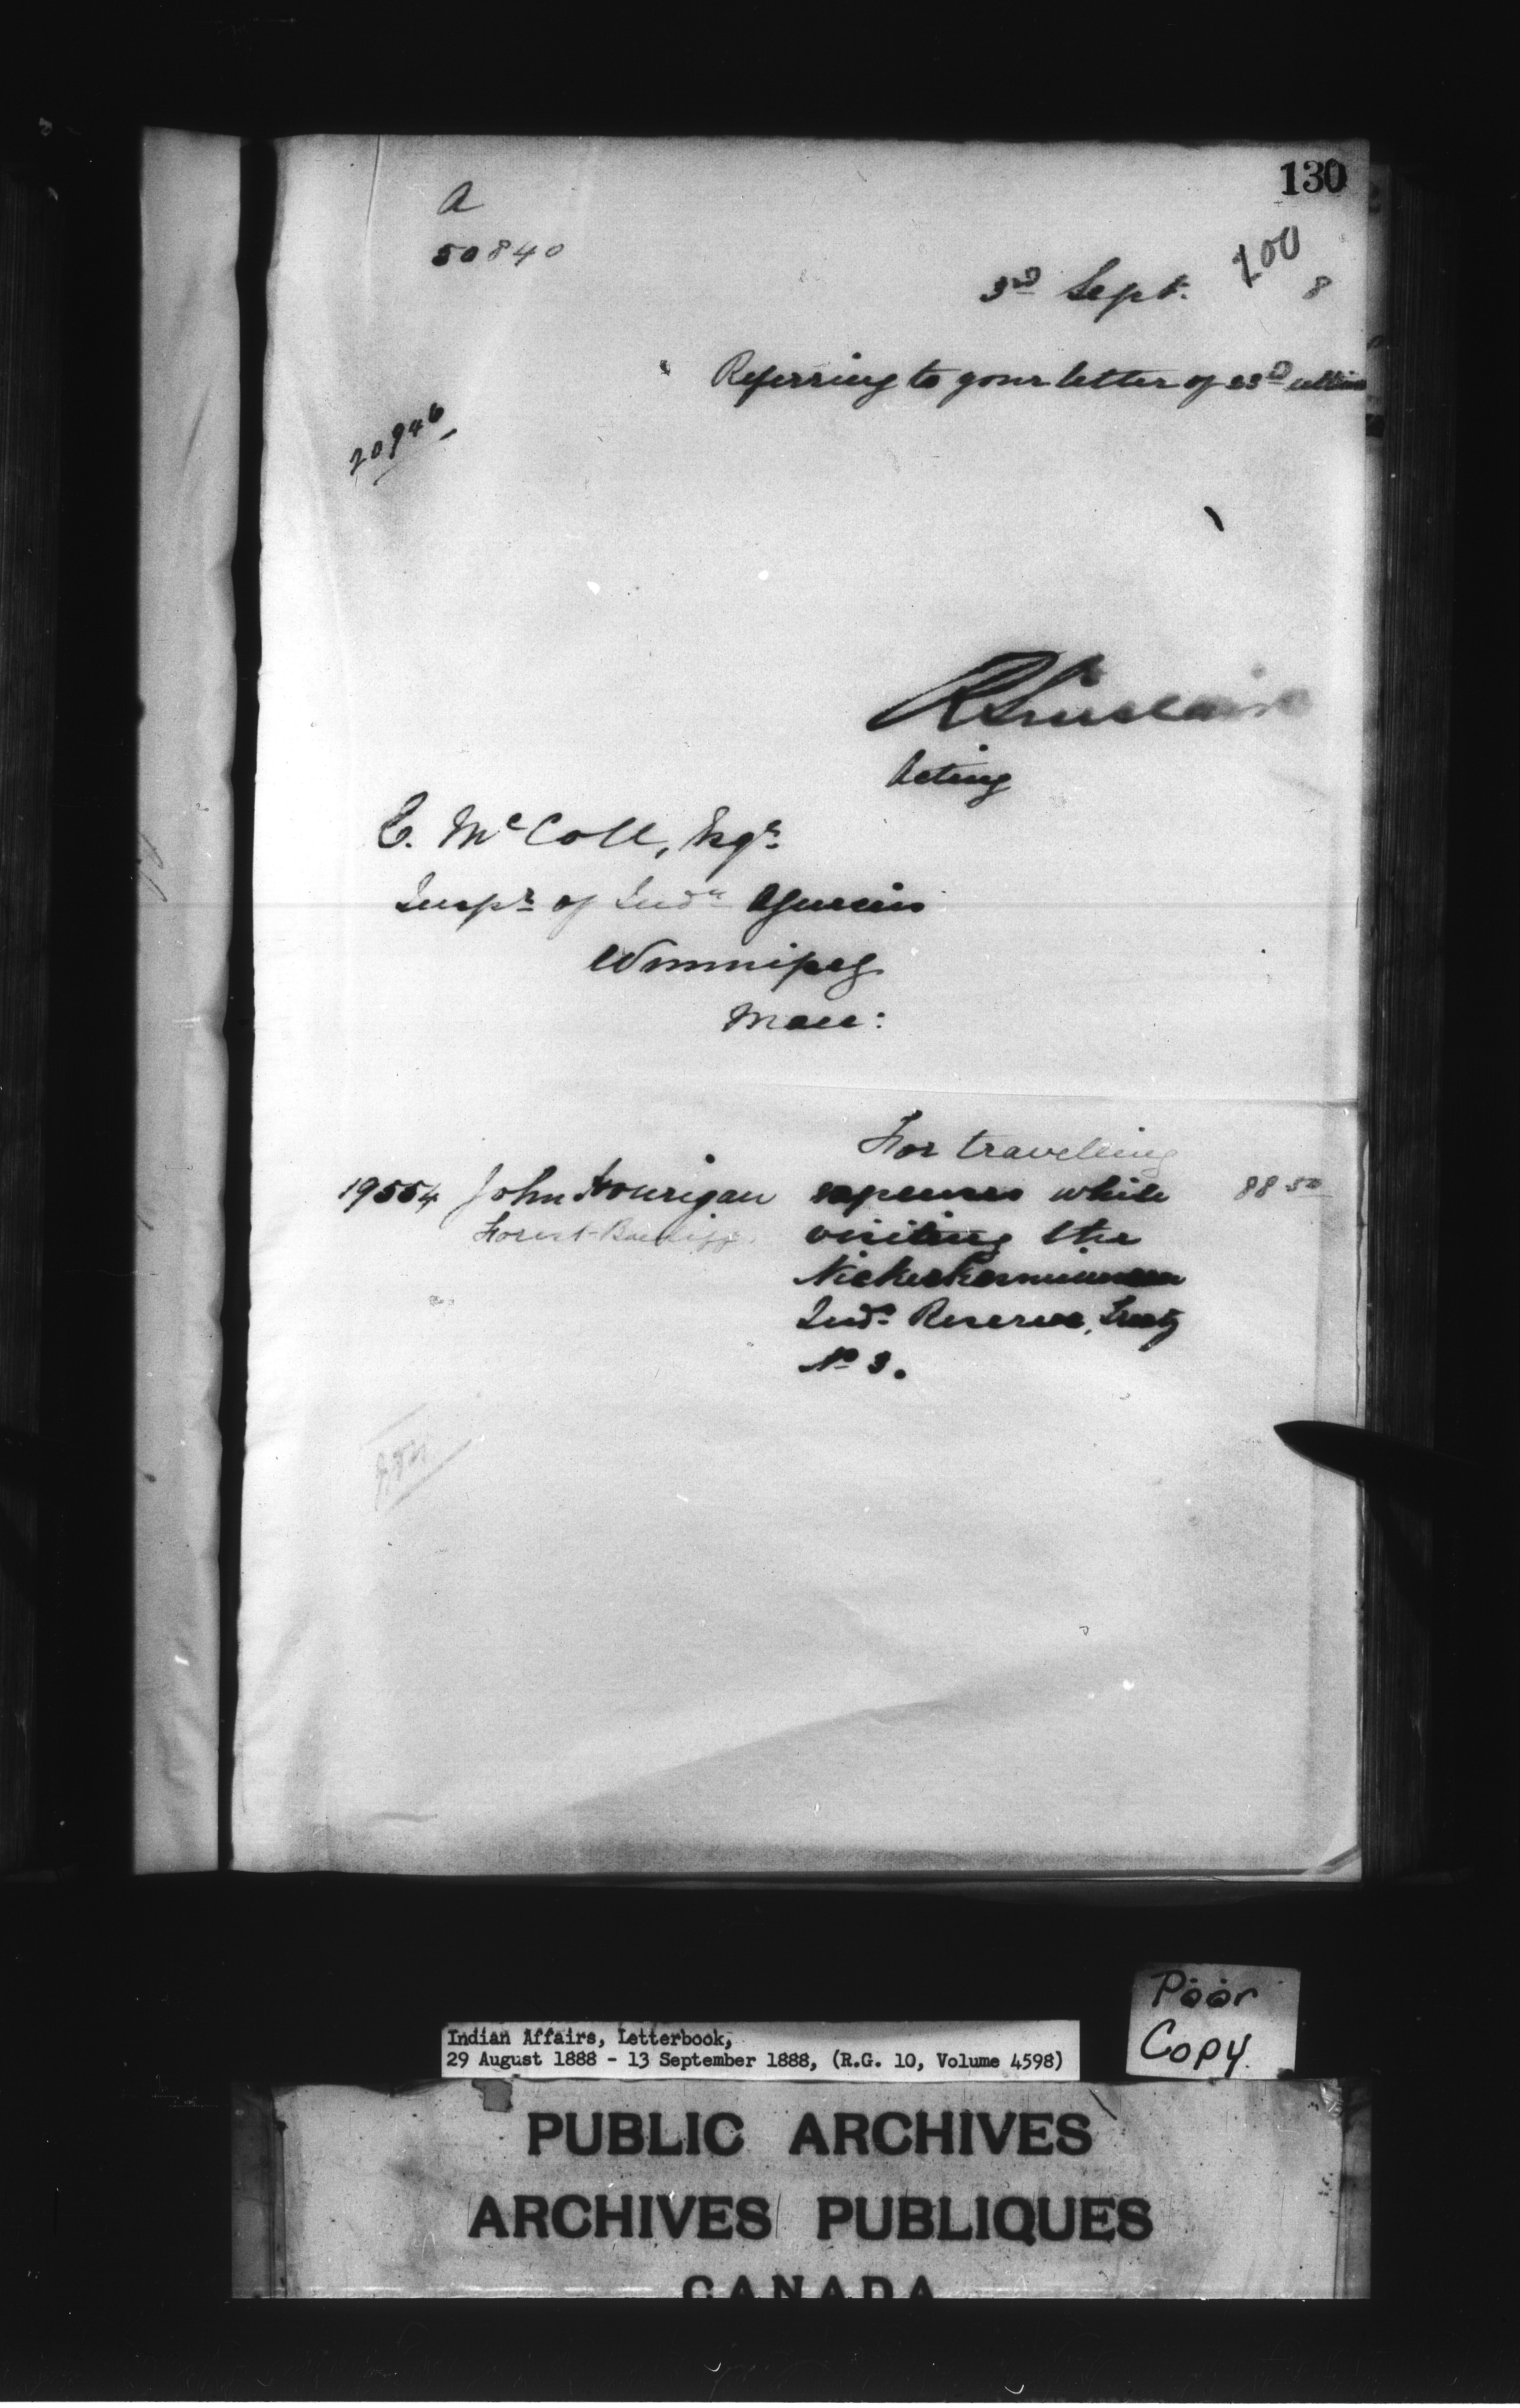 130
a
50840
100
3rd Sept. 8
Referring to your letter of 23rd ultimo
20946
R Sinclair
Acting
E. McColl, Esqr.
Inspr. of Indn Agencies
Winnipeg
Man:
For travelling
19554 John Hourigan expenses while 88 50
Forest Bailiff. visiting the
Ind. Reserve, Treaty
No 3.
Poor
Copy.
Indian Affairs, Letterbook,
29 August 1888 - 13 September 1888, (R.G. 10, Volume 4598)
PUBLIC ARCHIVES
ARCHIVES PUBLIQUES
CANADA